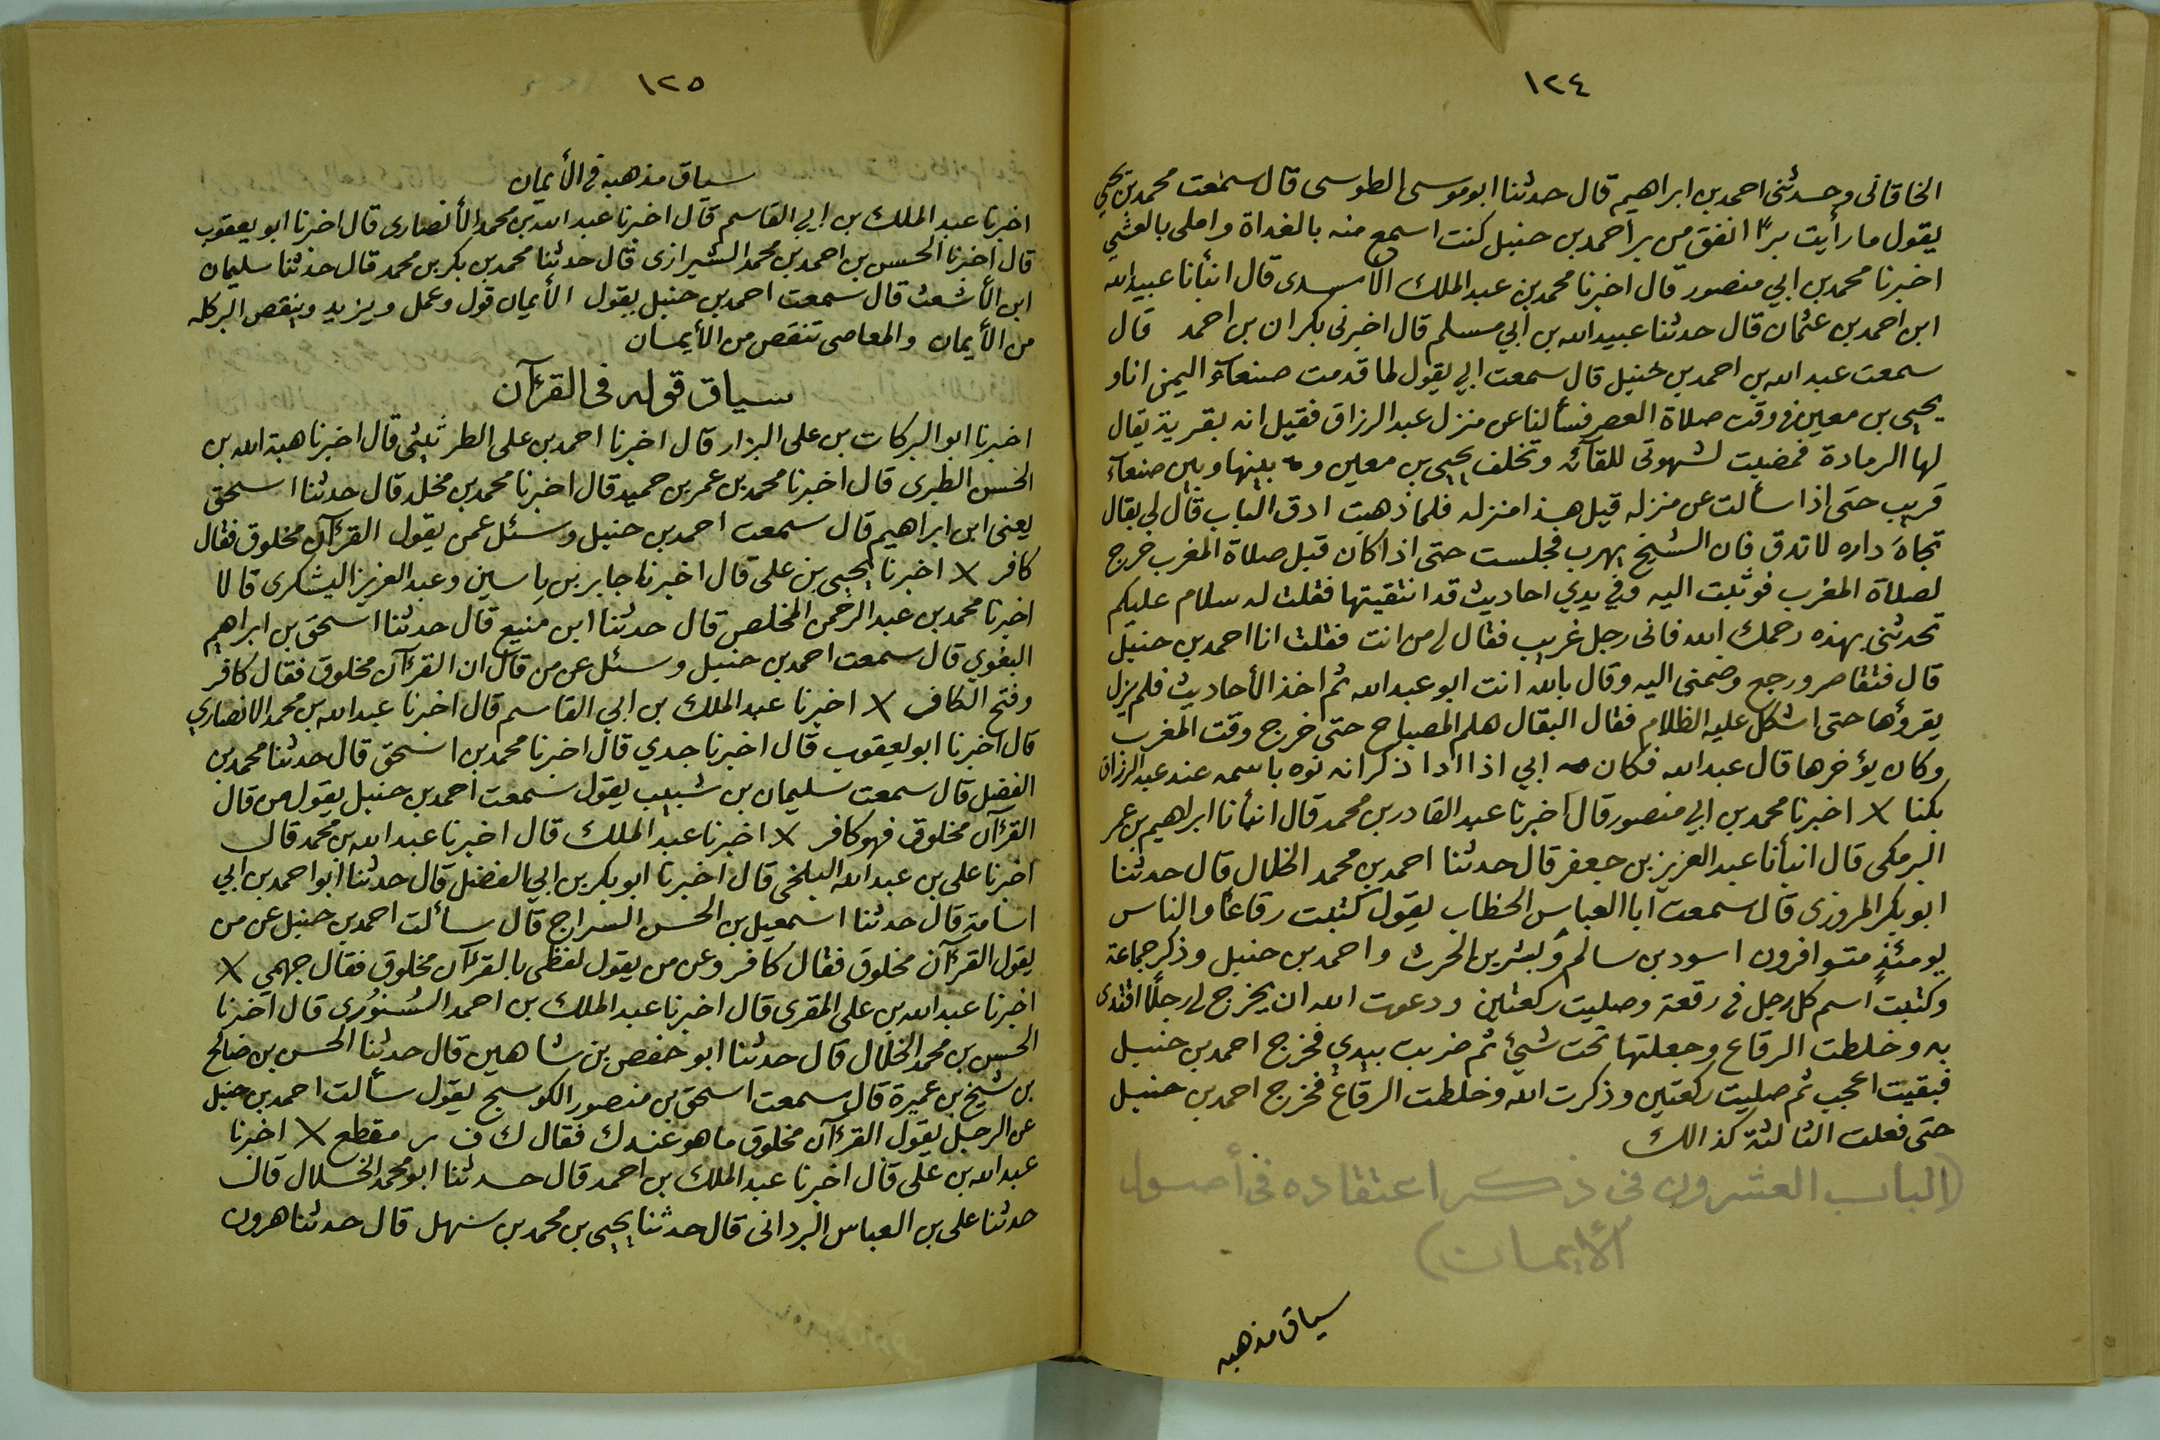 ١٢٤
الخاقانى وحدثنى احمد بن ابراهيم قال حدثنا ابو موسى الطوسى قال سمعت محمد بن يحيى
يقول ما رأيت برًا انفق من بر احمد بن حنبل كنت اسمع منه بالغداة واملى بالعشى
اخبرنا محمد بن ابي منصور قال اخبرنا محمد بن عبد الملك الأسدى قال انبأنا عبيد الله
ابن احمد بن عثمان قال حدثنا عبيد الله بن ابي مسلم قال اخبرنى بكران بن احمد قال
سمعت عبد الله بن احمد بن حنبل قال سمعت ابي يقول لما قدمت صنعآء اليمن انا و
يحيى بن معين فى وقت صلاة العصر فسألنا عن منزل عبد الرزاق فقيل انه بقرية يقال
لها الرمادة فمضيت لشهوتى للقائه وتخلف يحيى بن معين و بينها وبين صنعآء
قريب حتى اذا سألت عن منزله قيل هذا منزله فلما ذهبت ادق الباب قال لى بقال
تجاه داره لا تدق فان الشيخ يهرب فجلست حتى اذا كان قبل صلاة المغرب خرج
لصلاة المغرب فوثبت اليه وفى يدي احاديث قد انتقيتها فقلت له سلام عليكم
تحدثنى بهذه رحمك الله فانى رجل غريب فقال لى من انت فقلت انا احمد بن حنبل
قال فتقاصر ورجع وضمنى اليه وقال بالله انت ابو عبد الله ثم اخذ الأحاديث فلم يزل
يقرؤها حتى اشكل عليه الظلام فقال البقال هلم المصباح حتى خرج وقت المغرب
وكان يؤخرها قال عبد الله فكان ابي اذا ذكر انه نوه باسمه عند عبد الرزاق
بكنا × اخبرنا محمد بن ابي منصور قال اخبرنا عبد القادر بن محمد قال انبأنا ابراهيم بن عمر
البرمكى قال انبأنا عبد العزيز بن جعفر قال حدثنا احمد بن محمد الخلال قال حدثنا
ابو بكر المروزى قال سمعت ابا العباس الخطاب يقول كتبت رقاعًا والناس
يومئذٍ متوافرون اسود بن سالم وبشر بن الحرث واحمد بن حنبل وذكر جماعة
وكتبت اسم كل رجل فى رقعة وصليت ركعتين ودعوت الله ان يخرج لى رجلًا اقتدى
به وخلطت الرقاع وجعلتها تحت شئ ثم ضربت بيدي فخرج احمد بن حنبل
فبقيت اعجب ثم صليت ركعتين وذكرت الله وخلطت الرقاع فخرج احمد بن حنبل
حتى فعلت الثالثة كذالك
(الباب العشرون فى ذكر اعتقاده فى أصول
الأيمان)
سياق مذهبه
١٢٥
سياق مذهبه فى الأيمان
اخبرنا عبد الملك بن ابي القاسم قال اخبرنا عبد الله بن محمد الأنصارى قال اخبرنا ابو يعقوب
قال اخبرنا الحسن بن احمد بن محمد الشيرازى قال حدثنا محمد بن بكر بن محمد قال حدثنا سليمان
ابن الأشعث قال سمعت احمد بن حنبل يقول الأيمان قول وعمل ويزيد وينقص البر كله
من الأيمان والمعاصى تنقص من الأيمان
سياق قوله فى القرآن
اخبرنا ابو البركات بن على البزار قال اخبرنا احمد بن على الطرثيثى قال اخبرنا هبة الله بن
الحسن الطبرى قال اخبرنا محمد بن عمر بن حميد قال اخبرنا محمد بن مخلد قال حدثنا اسحق
يعنى ابن ابراهيم قال سمعت احمد بن حنبل وسئل عمن يقول القرآن مخلوق فقال
كافر × اخبرنا يحيى بن على قال اخبرنا جابر بن ياسين وعبد العزيز اليشكرى قالا
اخبرنا محمد بن عبد الرحمن المخلص قال حدثنا ابن منيع قال حدثنا اسحق بن ابراهيم
البغوي قال سمعت احمد بن حنبل وسئل عن من قال ان القرآن مخلوق فقال كافر
وفتح الكاف × اخبرنا عبد الملك بن ابي القاسم قال اخبرنا عبد الله بن محمد الانصاري
قال اخبرنا ابو يعقوب قال اخبرنا جدي قال اخبرنا محمد بن اسحق قال حدثنا محمد بن
الفضل قال سمعت سليمان بن شبيب يقول سمعت احمد بن حنبل يقول من قال
القرآن مخلوق فهو كافر × اخبرنا عبد الملك قال اخبرنا عبد الله بن محمد قال
اخبرنا على بن عبد الله البلخى قال اخبرنا ابو بكر بن ابي الفضل قال حدثنا ابو احمد بن ابي
اسامة قال حدثنا اسمعيل بن الحسن السراج قال سألت احمد بن حنبل عن من
يقول القرآن مخلوق فقال كافر وعن من يقول لفظى بالقرآن مخلوق فقال جهمي ×
اخبرنا عبد الله بن على المقرى قال اخبرنا عبد الملك بن احمد السُنوُرى قال اخبرنا
الحسن بن محمد الخلال قال حدثنا ابو حفص بن شاهين قال حدثنا الحسن بن صالح
بن شيخ بن عميرة قال سمعت اسحق بن منصور الكوسج يقول سألت احمد بن حنبل
عن الرجل يقول القرآن مخلوق ما هو عندك فقال ك ف ر مقطع × اخبرنا
عبد الله بن على قال اخبرنا عبد الملك بن احمد قال حدثنا ابو محمد الخلال قال
حدثنا على بن العباس البردانى قال حدثنا يحيى بن محمد بن سهل قال حدثنا هرون